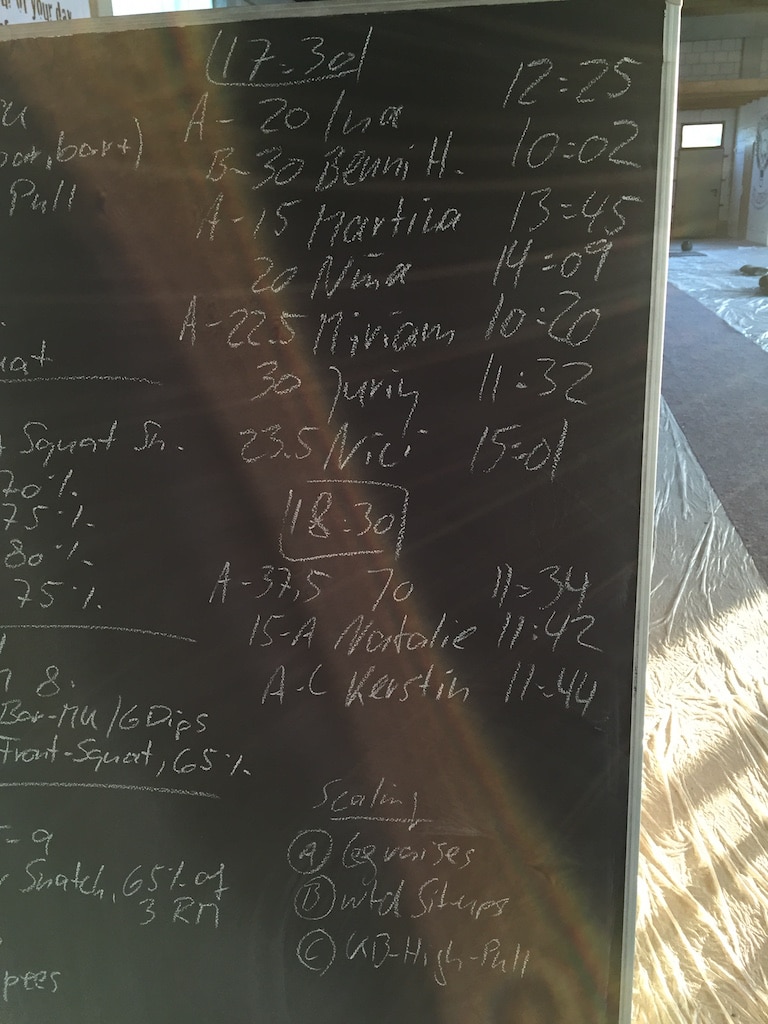 of your day
17:30
A- 20 Ina 12:25
B-30 Benni H. 10:02
A-15 Martina 13:45
20 Nina 14:09
A-22.5 Miriam 10:20
30 Juriy 11:32
23.5 Nici 15:01
18:30
A-37,5 70 11:34
15-A Natalie 11:42
A-C Kerstin 11:44
Scaling
A Legraises
B wtd Situps
C KB-High-Pull
Pull
Squat Sn.
70%
75%
80%
75%
8:
Bar-MU/6Dips
Front-Squat, 65%
-9
Snatch, 65% of
3 RM